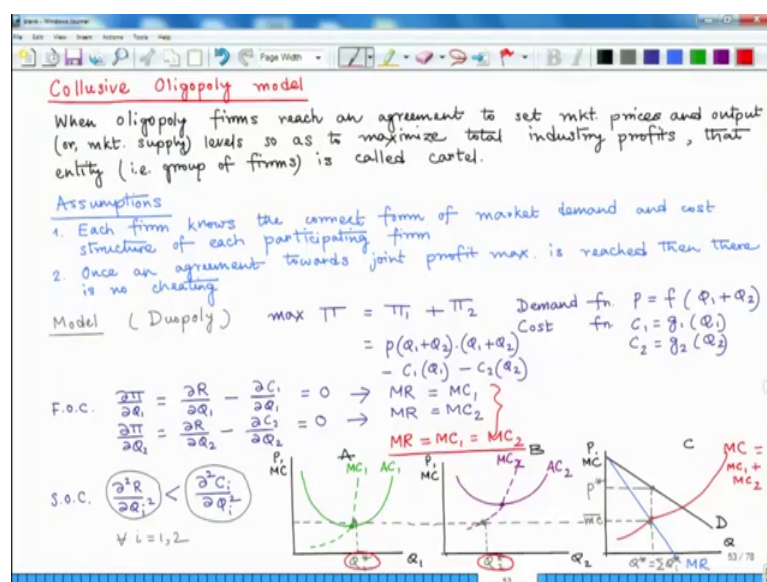 blank - Windows Journal
File Edit View Insert Actions Tools Help
Page Width
Collusive Oligopoly model
When oligopoly firms reach an agreement to set mkt. prices and output
(or, mkt. supply) levels so as to maximize total industry profits, that
entity (i.e. group of firms) is called cartel.
Assumptions
1. Each firm knows the correct form of market demand and cost
structure of each participating firm
2. Once an agreement towards joint profit max. is reached then there
is no cheating
Model (Duopoly) max Π = Π₁ + Π₂ Demand fn. P = f(Q₁+Q₂)
= p(Q₁+Q₂).(Q₁+Q₂) Cost fn. C₁ = g₁(Q₁)
- C₁(Q₁) - C₂(Q₂) C₂ = g₂(Q₂)
F.O.C. ∂Π/∂Q₁ = ∂R/∂Q₁ - ∂C₁/∂Q₁ = 0 → MR = MC₁
∂Π/∂Q₂ = ∂R/∂Q₂ - ∂C₂/∂Q₂ = 0 → MR = MC₂
MR = MC₁ = MC₂
S.O.C. ∂²R/∂Qᵢ² < ∂²Cᵢ/∂Qᵢ²
∀ i = 1,2
A
P, MC
MC₁ AC₁
Q₁* Q₁
B
P, MC
MC₂ AC₂
Q₂* Q₂
C
P, MC
MC = MC₁ + MC₂
P*
mc
D
Q
Q* = ΣQᵢ* MR
53 / 78
53